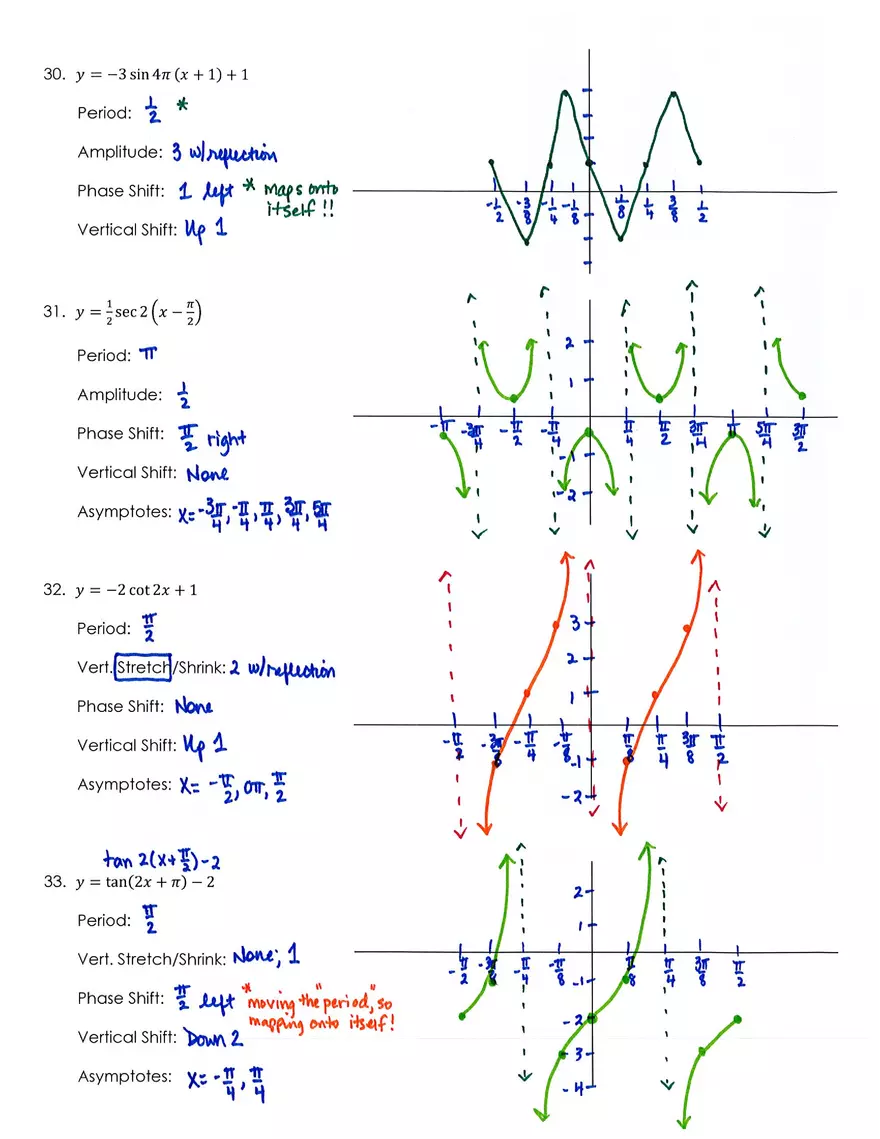 30. y = −3 sin 4π (x + 1) + 1
Period: 1/2 *
Amplitude: 3 w/reflection
Phase Shift: 1 left * maps onto
itself!!
Vertical Shift: Up 1
-1/2 -3/8 -1/4 -1/8 1/8 1/4 3/8 1/2
31. y = 1/2 sec 2 (x − π/2)
Period: π
Amplitude: 1/2
Phase Shift: π/2 right
Vertical Shift: None
Asymptotes: x= -3π/4, -π/4, π/4, 3π/4, 5π/4
2
1
-π -3π/4 -π/2 -π/4 π/4 π/2 3π/4 π 5π/4 3π/2
-1
-2
32. y = −2 cot 2x + 1
Period: π/2
Vert. Stretch/Shrink: 2 w/reflection
Phase Shift: None
Vertical Shift: Up 1
Asymptotes: x= -π/2, 0π, π/2
3
2
1
-π/2 -3π/8 -π/4 -π/8 π/8 π/4 3π/8 π/2
-1
-2
tan 2(x+π/2)-2
33. y = tan(2x + π) − 2
Period: π/2
Vert. Stretch/Shrink: None; 1
Phase Shift: π/2 left *moving the "period", so
mapping onto itself!
Vertical Shift: Down 2
Asymptotes: x= -π/4, π/4
2
1
-π/2 -3π/8 -π/4 -π/8 π/8 π/4 3π/8 π/2
-1
-2
-3
-4